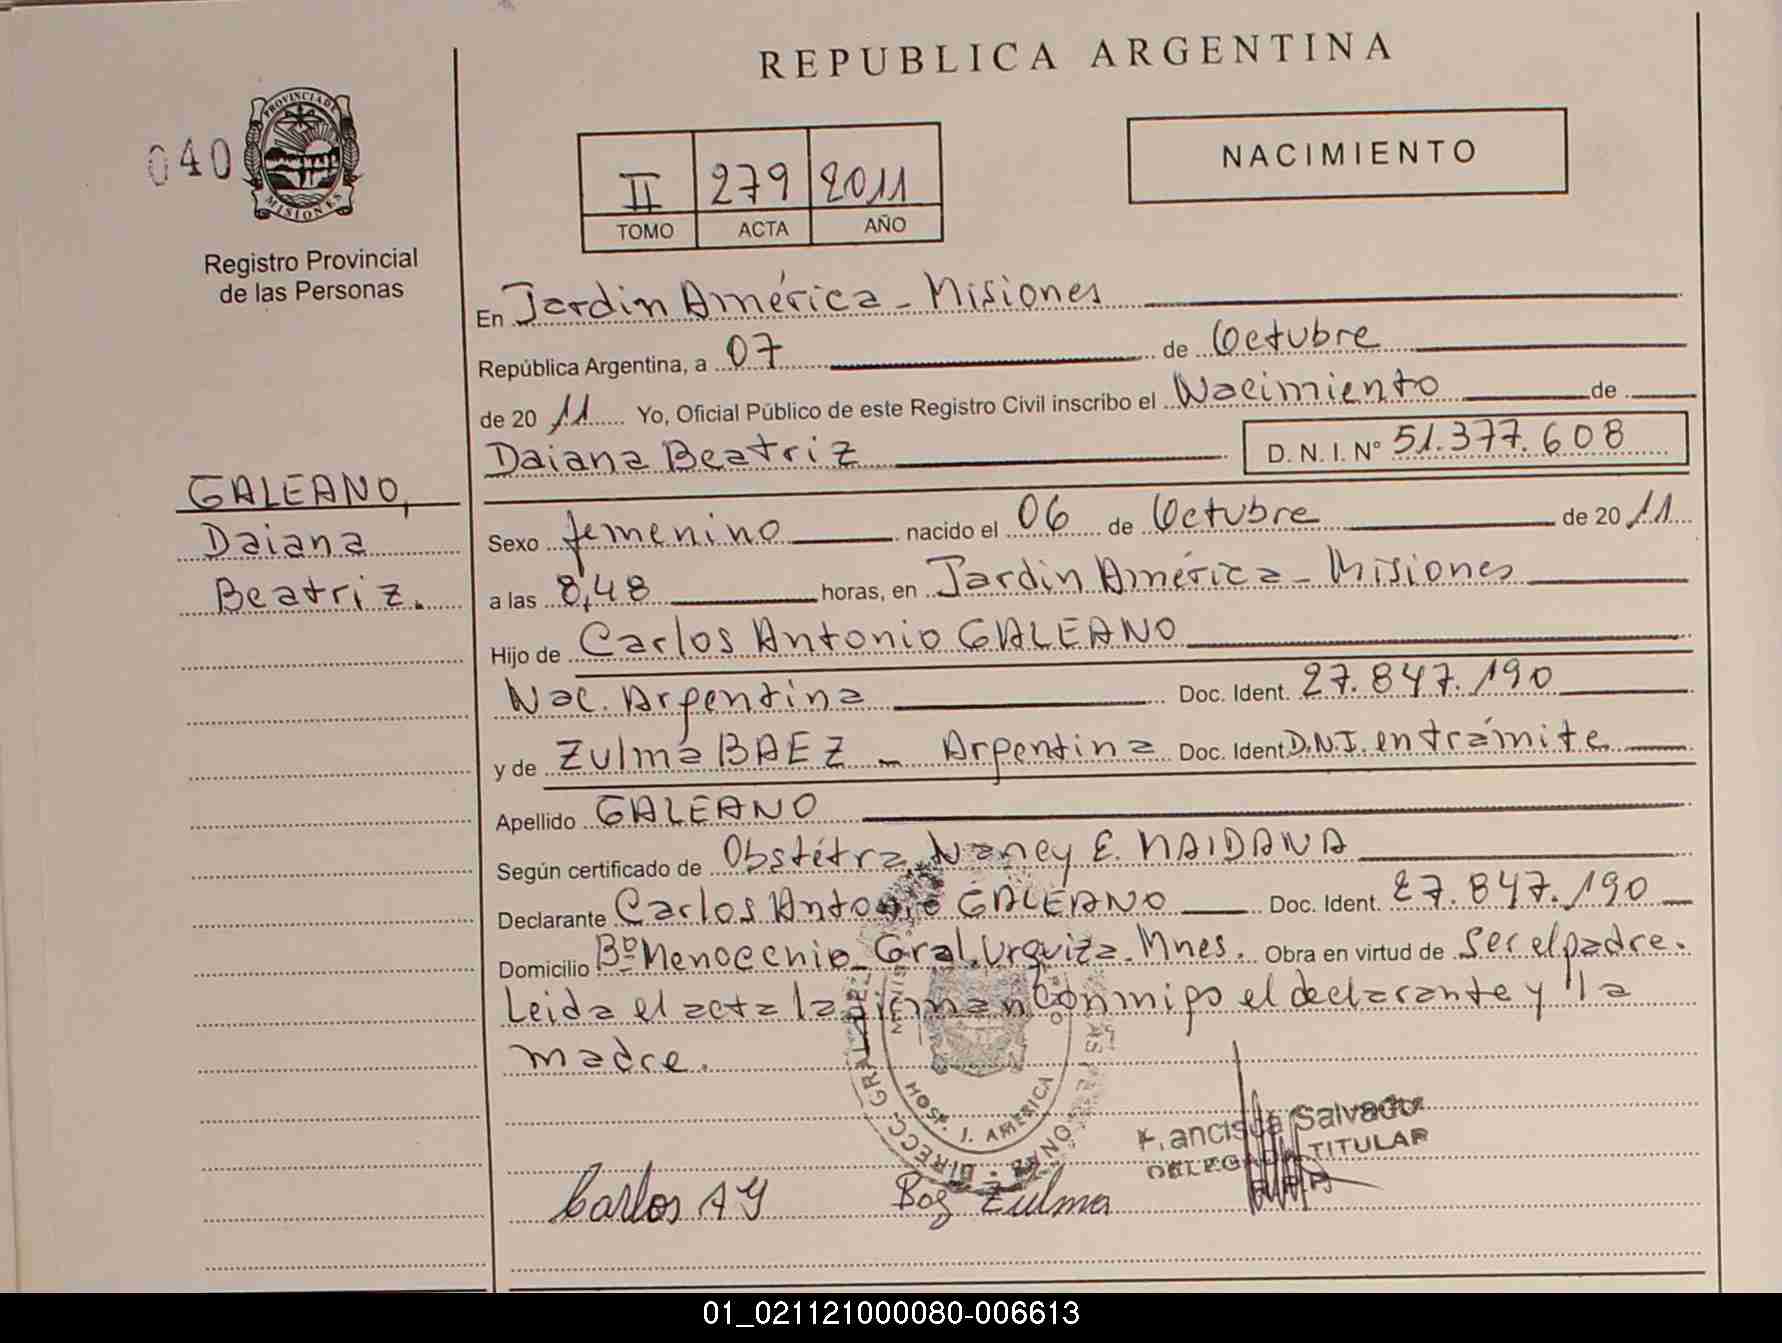 REPUBLICA ARGENTINA
040
PROVINCIA DE
MISIONES
Registro Provincial
de las Personas
NACIMIENTO
II 279 2011
TOMO ACTA AÑO
En Jardin América - Misiones
República Argentina, a 07 de Octubre
de 20 11 Yo, Oficial Público de este Registro Civil inscribo el Nacimiento de
Daiana Beatriz D. N. I. Nº 51.377.608
GALEANO,
Daiana
Beatriz.
Sexo femenino nacido el 06 de Octubre de 20 11
a las 8,48 horas, en Jardin América - Misiones
Hijo de Carlos Antonio GALEANO
Nac. Argentina Doc. Ident. 27.847.190
y de Zulma BAEZ - Argentina Doc. Ident. D.N.I. en trámite
Apellido GALEANO
Según certificado de Obstétra, Nancy E. MAIDANA
Declarante Carlos Antonio GALEANO Doc. Ident. 27.847.190
Domicilio Bº Menocchio - Gral. Urquiza - Mnes. Obra en virtud de ser el padre.
Leida el acta la firman conmigo el declarante y la
madre.
HOSP. J. AMERICA
DIRECC. GRAL. DE
Francisca Salvador
DELEGADA TITULAR
Carlos A G
Baez Zulma
01_021121000080-006613